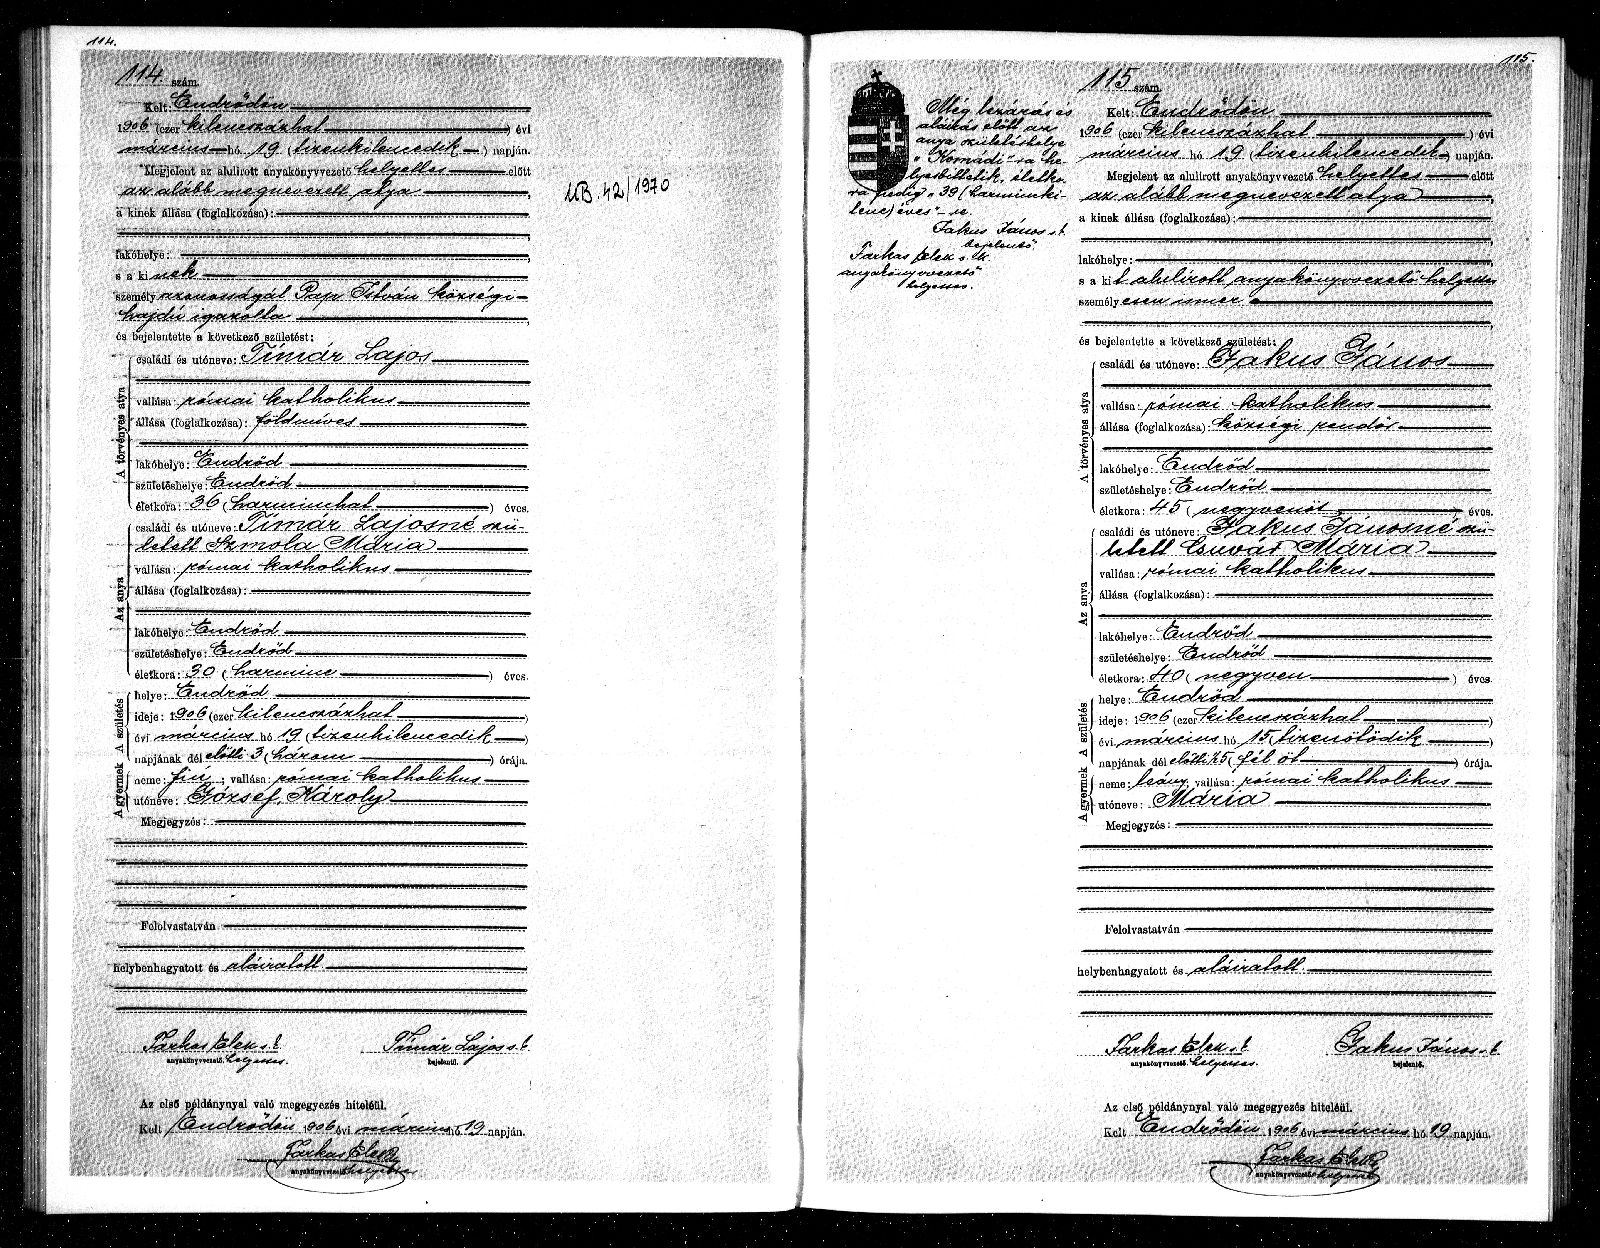 114.
114. szám.
Kelt Endrődön
1906 (ezer kilencszázhat) évi
március hó 19 (tizenkilencedik) napján.
Megjelent az alulirott anyakönyvvezető helyettes előtt
az alább megnevezett atya
a kinek állása (foglalkozása):
lakóhelye:
s a kinek
személyazonosságát Pap István községi
hajdú igazolta
és bejelentette a következő születést:
A törvényes atya
családi és utóneve: Tímár Lajos
vallása: római katholikus
állása (foglalkozása): földmíves
lakóhelye: Endrőd
születéshelye: Endrőd
életkora: 36 (harminchat) éves.
Az anya
családi és utóneve: Tímár Lajosné szü-
letett Szmola Mária
vallása: római katholikus
állása (foglalkozása):
lakóhelye: Endrőd
születéshelye: Endrőd
életkora: 30 (harminc) éves.
A születés
helye: Endrőd
ideje: 1906 (ezer kilencszázhat)
évi március hó 19 (tizenkilencedik)
napjának dél előtti 3 (három) órája.
A gyermek
neme: fiú; vallása: római katholikus
utóneve: József, Károly
Megjegyzés:
Felolvastatván
helybenhagyatott és aláiratott.
Farkas Elek s.k. Tímár Lajos s.k.
anyakönyvvezető helyettes. bejelentő.
Az első példánynyal való megegyezés hiteléül.
Kelt Endrődön 1906 évi március hó 19 napján.
Farkas Elek
anyakönyvvezető helyettes
UB. 42/1970
115.
Még lezárás és
aláírás előtt az
anya születéshelye
"Komádi"-ra he-
lyesbíttetik, életko-
ra pedig "39 (harmincki-
lenc) éves"-re.
Jakus János s.k.
bejelentő
Farkas Elek s.k.
anyakönyvvezető
helyettes.
115 szám.
Kelt: Endrődön
1906 (ezer kilencszázhat) évi
március hó 19 (tizenkilencedik) napján.
Megjelent az alulirott anyakönyvvezető helyettes előtt
az alább megnevezett atya
a kinek állása (foglalkozása):
lakóhelye:
s a kit alulirott anyakönyvvezető helyettes
személyesen ismer
és bejelentette a következő születést:
A törvényes atya
családi és utóneve: Jakus János
vallása: római katholikus
állása (foglalkozása): községi rendőr
lakóhelye: Endrőd
születéshelye: Endrőd
életkora: 45 (negyvenöt) éves.
Az anya
családi és utóneve: Jakus Jánosné szü-
letett Csuvár Mária
vallása: római katholikus
állása (foglalkozása):
lakóhelye: Endrőd
születéshelye: Endrőd
életkora: 40 (negyven) éves.
A születés
helye: Endrőd
ideje: 1906 (ezer kilencszázhat)
évi március hó 15 (tizenötödik)
napjának dél előtti ½5 (fél öt) órája.
A gyermek
neme: leány; vallása: római katholikus
utóneve: Mária
Megjegyzés:
Felolvastatván
helybenhagyatott és aláiratott.
Farkas Elek s.k. Jakus János s.k.
anyakönyvvezető helyettes. bejelentő.
Az első példánynyal való megegyezés hiteléül.
Kelt Endrődön 1906 évi március hó 19 napján.
Farkas Elek
anyakönyvvezető helyettes